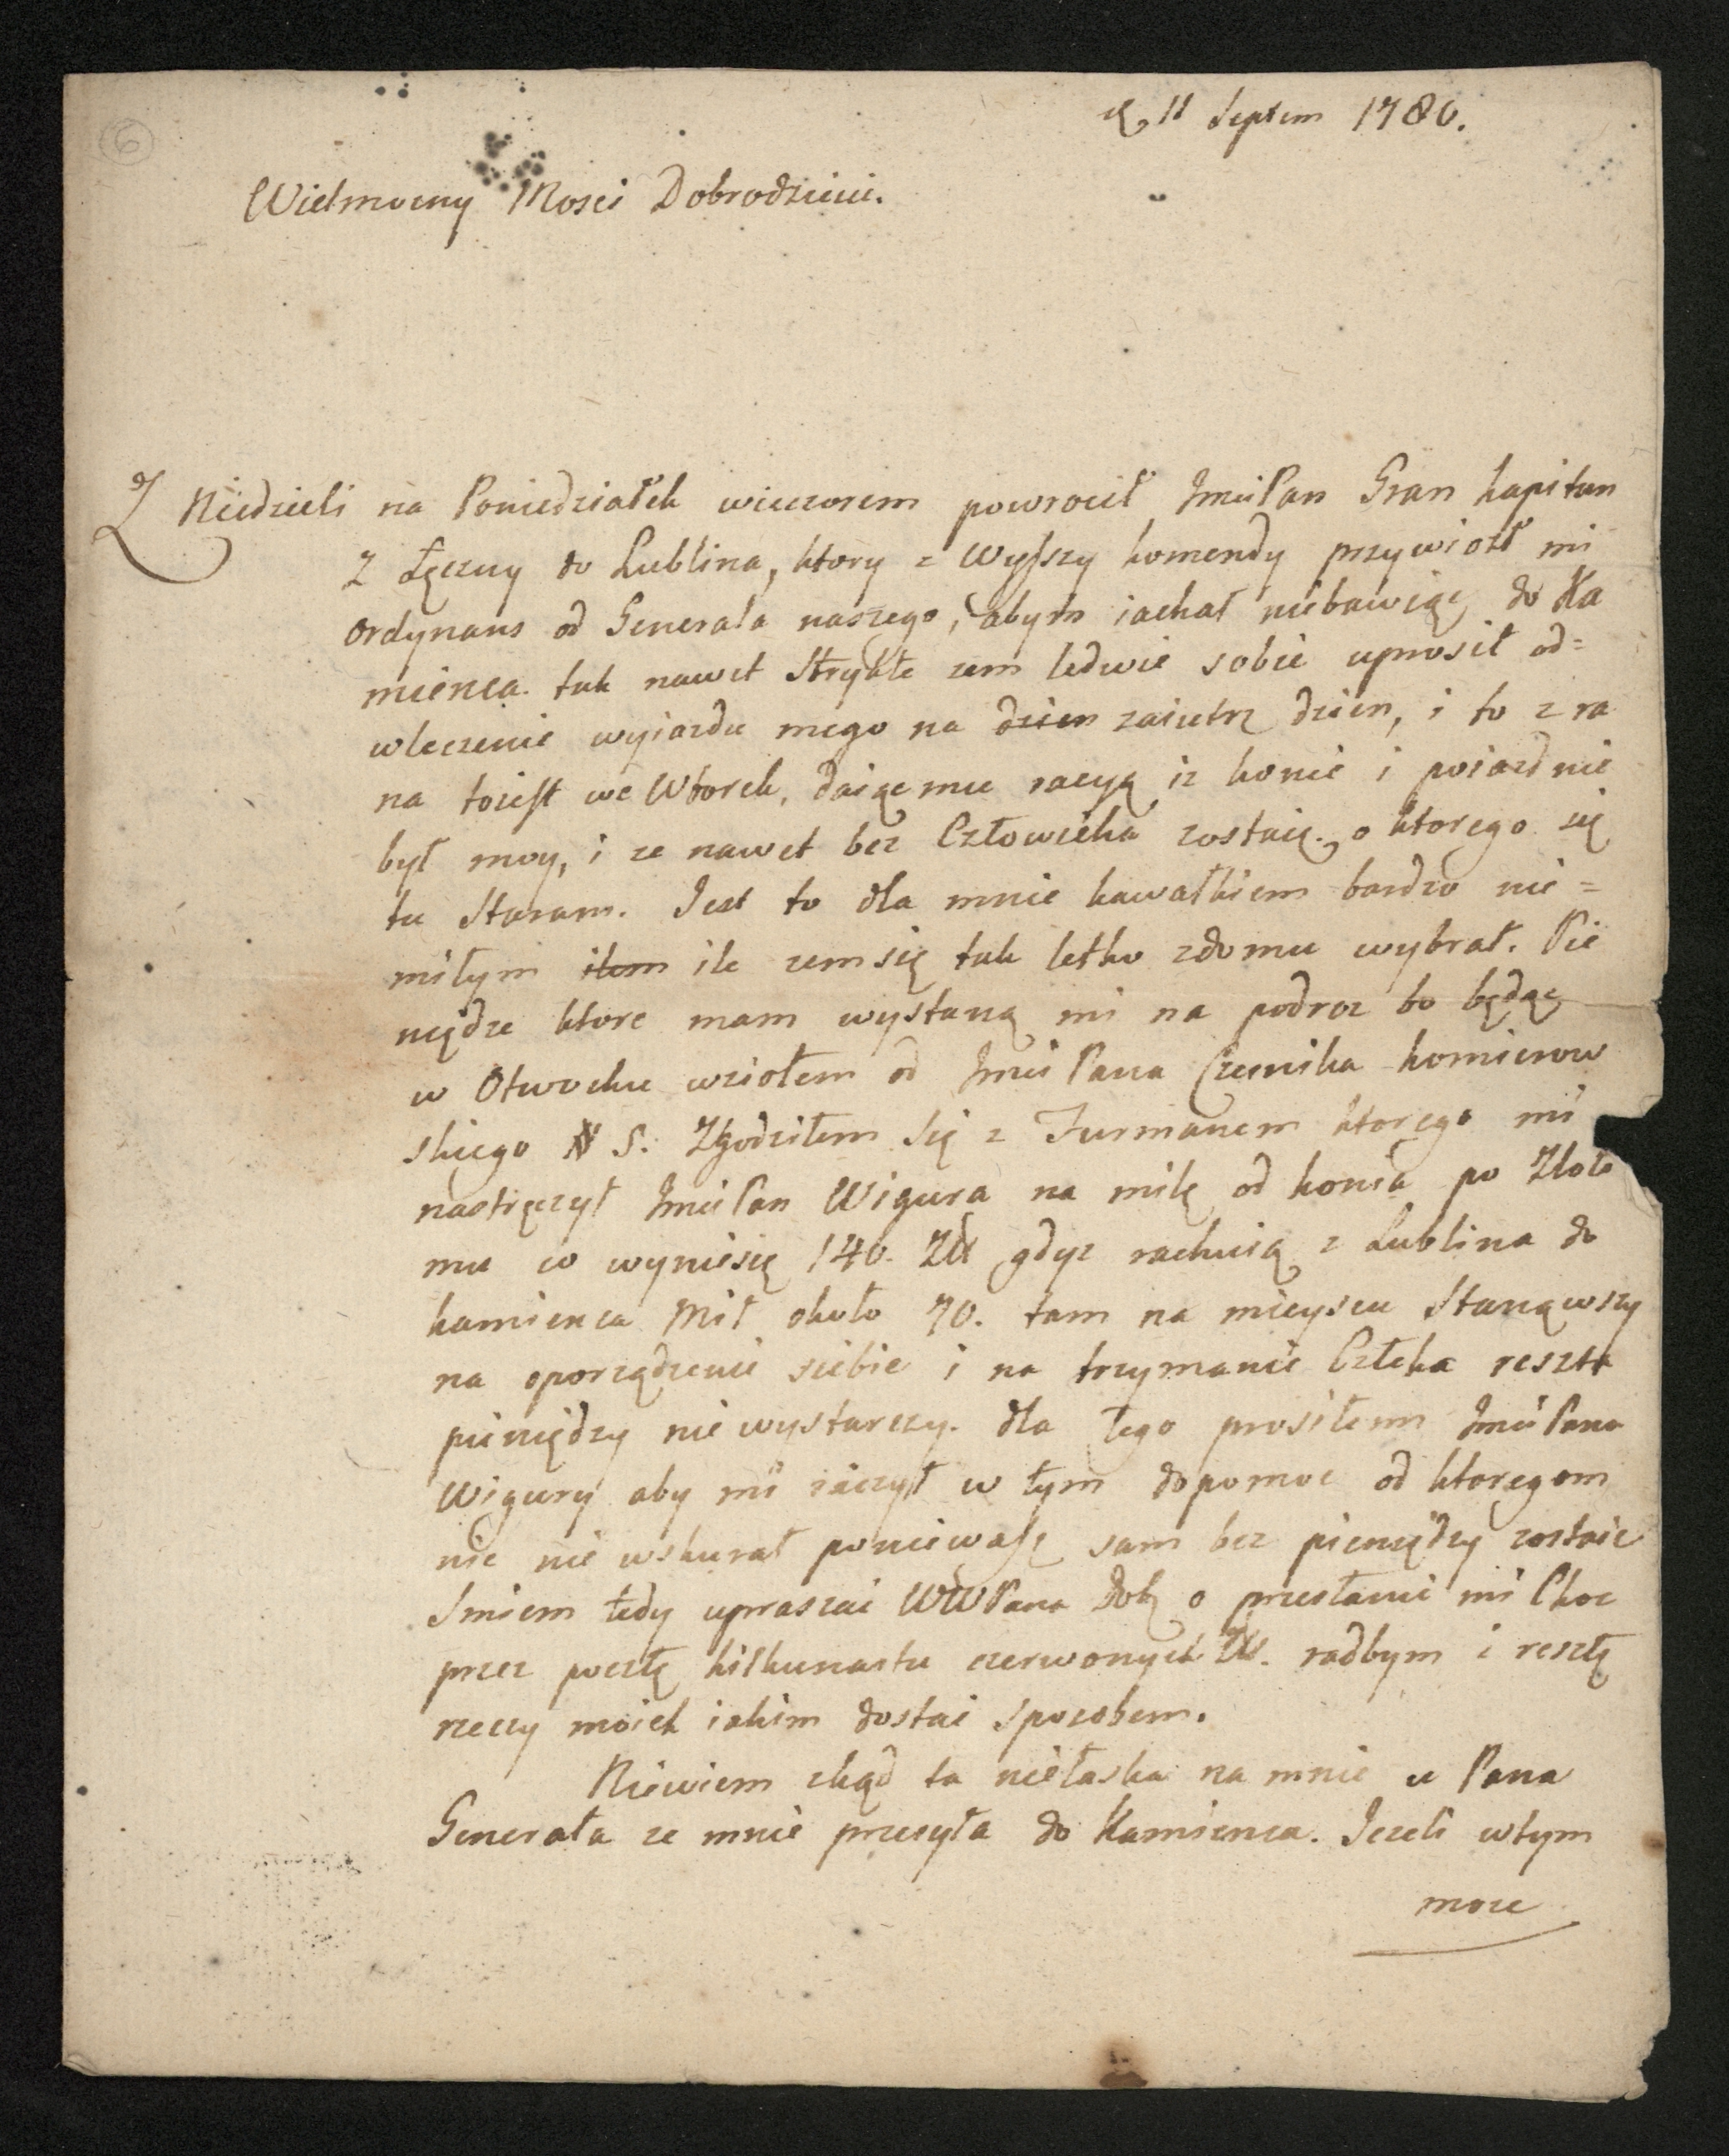 6
11 Septem 1780.
Wielmozny Mosci Dobrodzieiu.
Z Niedzieli na Poniedziałek wieczorem powrocił JmciPan Gran kapitan
z Łęczny do Lublina, ktory z Wyższy komendy przywiozł mi
ordynans od Generała naszego, abym iachał niebawiąc do Ka
mienca. tak nawet strykte zem ledwie sobie uprosił od=
wleczenie wyiazdu mego na dzien zaiutrz dzien, i to z ra
na toiest we Wtorek, daiąc mu racyą iz konie i poiazd nie
był moy, i ze nawet bez Człowieka zostaię. o ktorego się
tu Staram. Jest to dla mnie kawałkiem bardzo nie=
miłym ilem ile zem się tak letko zdomu wybrał. Pie
niędze ktore mam wystaną mi na podroz bo będąc
w Otwocku wziołem od Jmci Pana Czesnika komierow
skiego S. Zgodziłem się z Furmanem ktorego mi
nastręczył JmciPan Wigura na milę od konia po Zloto
mu co wyniesię 140. Zł gdyz rachuią z Lublina do
kamienca Mil około 70. tam na mieyscu Stanąwszy
na oporządzenie siebie i na trzymanie Człeka reszta
pieniędzy nie wystarczy. dla tego prosiłem Jmci Pana
Wigury aby mi raczył w tym dopomoc od ktoregom
nic nie wskurał poniewasz sam bez pieniędzy zostaie
Smiem tedy upraszac WWPana Dob o przesłanie mi Choc
przez pocztę kilkunastu czerwonych Zł. radbym i resztę
rzeczy moich iakim dostac sposobem.
Niewiem zkąd ta niełaska na mnie u Pana
Generała ze mnie przesyła do Kamienca. Jezeli wtym
moze